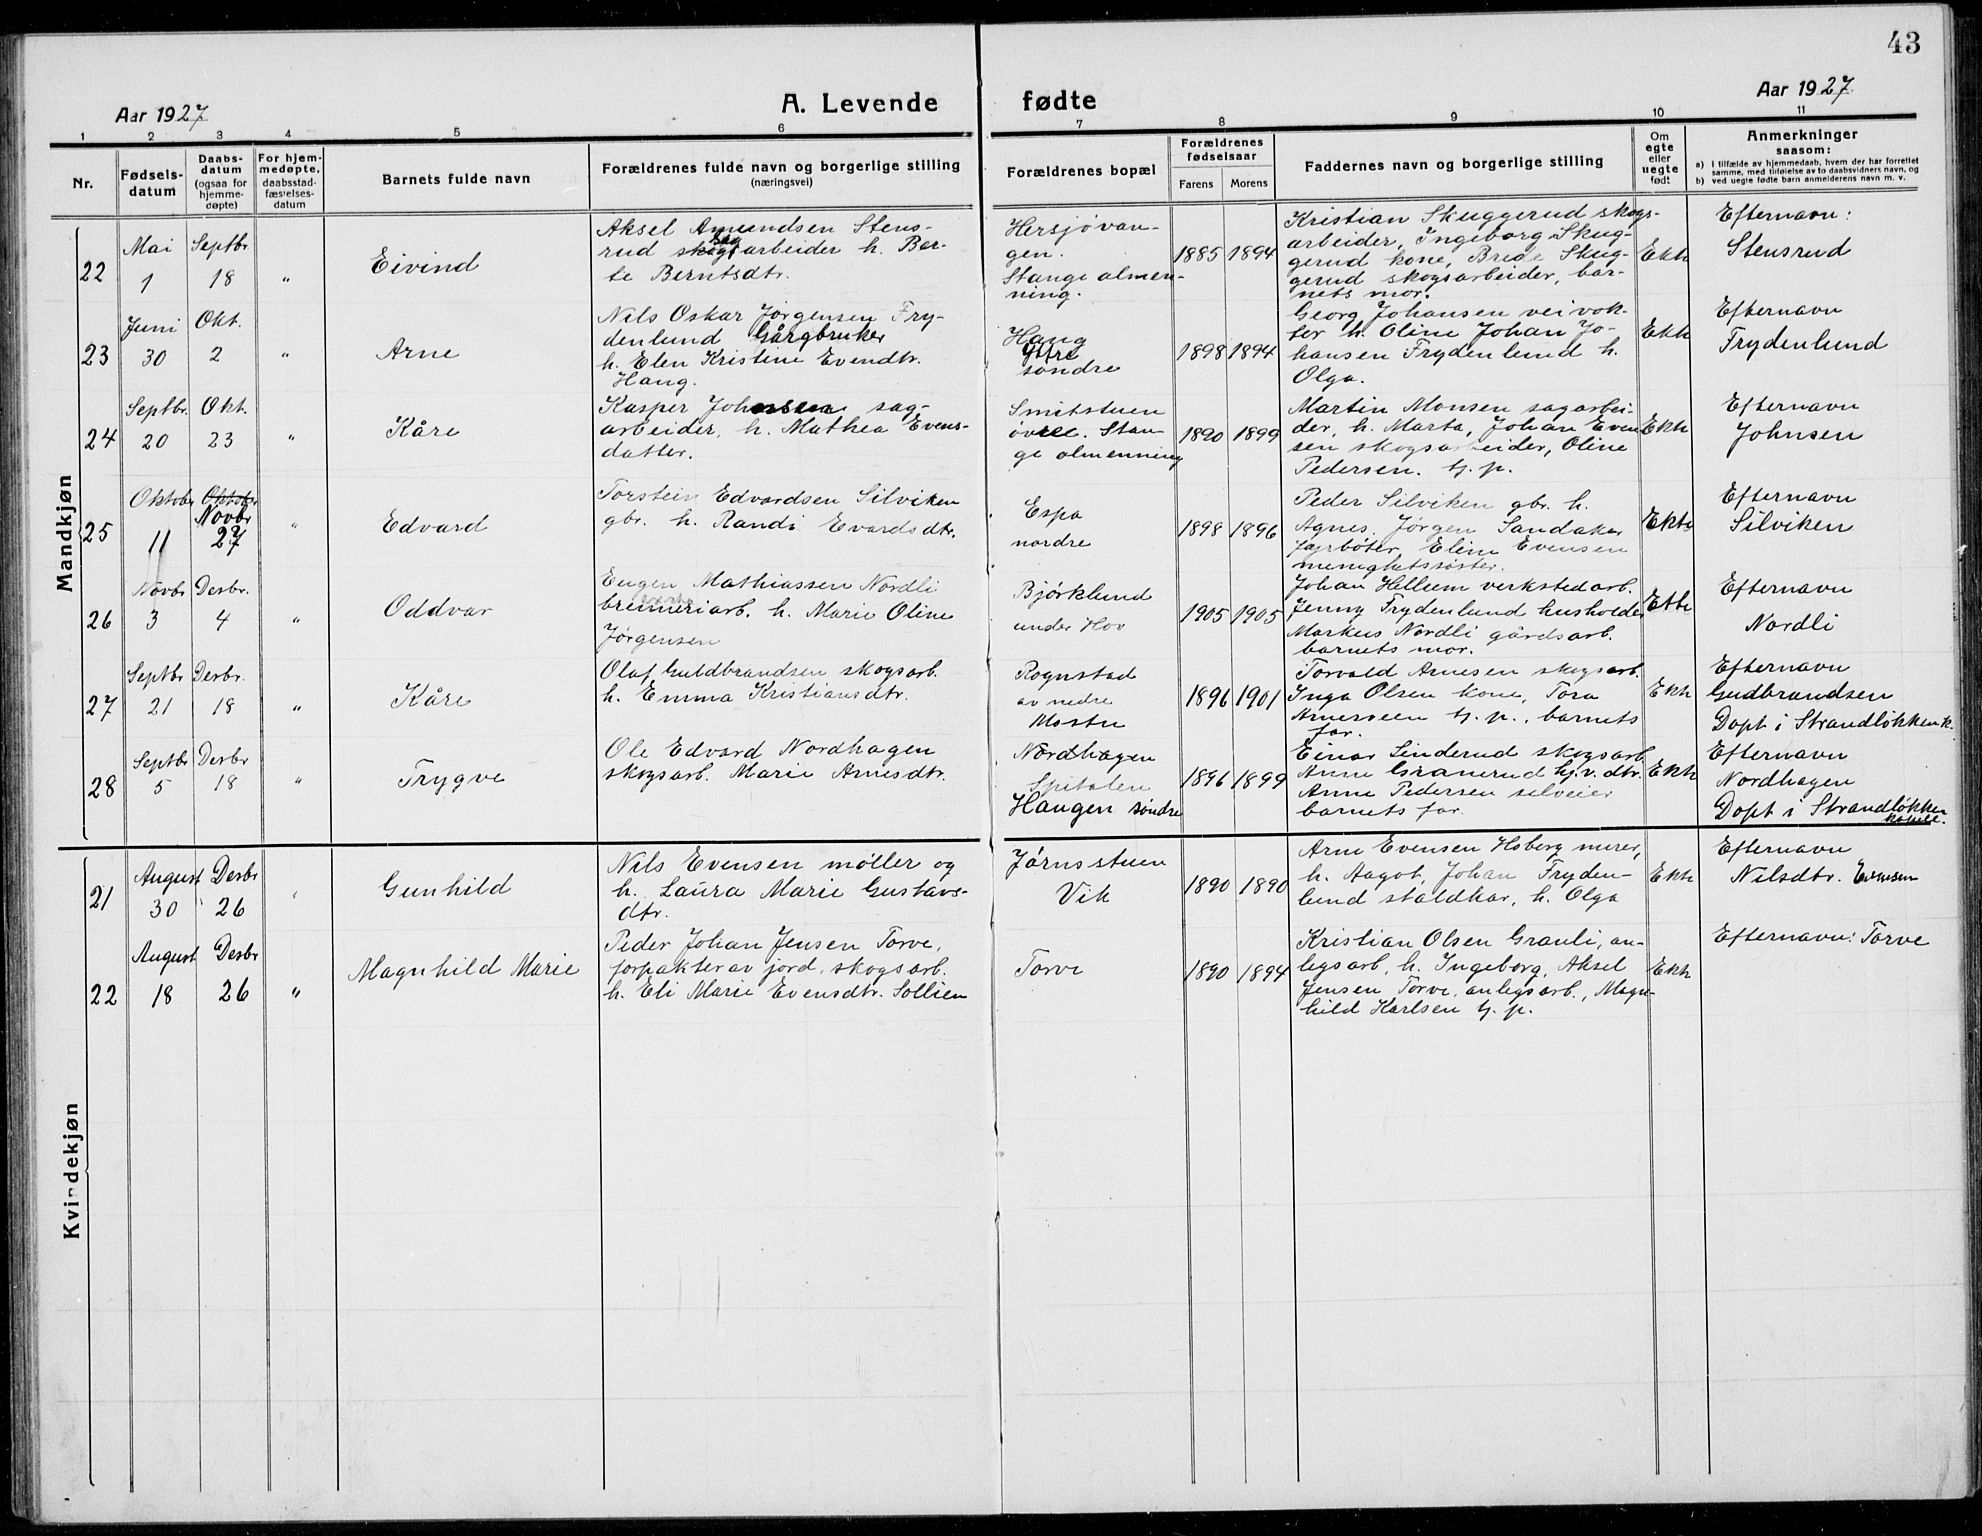 43
Aar 1927
A. Levende fødte
Aar 1927
1 2 3 4 5 6 7 8 9 10 11
Nr.
Fødsels-
datum
Daabs-
datum
(ogsaa for
hjemme-
døpte)
For hjem-
medøpte,
daabsstad-
fæstelses-
datum
Barnets fulde navn
Forældrenes fulde navn og borgerlige stilling
(næringsvei)
Forældrenes bopæl
Forældrenes
fødselsaar
Farens Morens
Faddernes navn og borgerlige stilling
Om
egte
eller
uegte
født
Anmerkninger
saasom:
a) I tilfælde av hjemmedaab, hvem der har forrettet
samme, med tilføielse av to daabsvidners navn, og
b) ved uegte fødte barn anmelderens navn m. v.
Mandkjøn
22
Mai
1
Septbr
18
"
Eivind
Aksel Amundsen Stens-
rud sagarbeider h. Ber-
te Berntsdtr.
Hersjøvan-
gen.
Stange almen-
ning.
1885 1894
Kristian Skuggerud skogs-
arbeider, Ingeborg Skug-
gerud kone, Brede Skug-
gerud skogsarbeider, bar-
nets mor.
Ekte
Efternavn:
Stensrud
23
Juni
30
Okt.
2
"
Arne
Nils Oskar Jørgensen Fry-
denlund Gårgbruker
h. Elen Kristine Evendtr.
Haug.
Haug
søndre
1898 1894
Georg Johansen veivok-
ter h. Oline Johan Jo-
hansen Frydenlund h.
Olga.
Ekte
Efternavn
Frydenlund
24
Septbr.
20
Okt.
23
"
Kåre
Kasper Johnsen sag-
arbeider, h. Mathea Evens-
datter.
Smitstuen
øvre. Stan-
ge almenning
1890 1899
Martin Monsen sagarbei-
der, h. Marta, Johan Even
sen skogsarbeider, Oline
Pedersen. hj. p.
Ekte
Efternavn
Johnsen
25
Oktobr
11
Oktobr
Novbr
27
"
Edvard
Torstein Edvardsen Silviken
gbr. h. Randi Evardsdtr.
Espa
nordre
1898 1896
Peder Silviken gbr. h.
Agnes, Jørgen Sandaker
fyrbøter, Eline Evensen
menighetssøster.
Ekte
Efternavn
Silviken
26
Novbr
3
Desbr.
4
"
Oddvar
Eugen Mathiassen Nordli
brenneriarb. h. Marie Oline
Jørgensen
Bjørklund
under Hov
1905 1905
Johan Hellum verkstedarb.
Jenny Frydenlund husholder
Markus Nordli gårdsarb.
barnets mor.
Ekte
Efternavn
Nordli
27
Septbr
21
Desbr.
18
"
Kåre
Olaf Guldbrandsen skogsarb.
h. Emma Kristiansdtr.
Rognstad
av nedre
Mostu
1896 1901
Torvald Arnesen skogsarb.
Inga Olsen kone, Tora
Arneseen hj. p., barnets
far.
Ekte
Efternavn
Gudbrandsen
Døpt i Strandløkken k.
28
Septbr
5
Desbr
18
"
Trygve
Ole Edvard Nordhagen
skogsarb. Marie Arnesdtr.
Nordhagen
Spitalen
Haugen søndre
1896 1899
Einar Sinderud skogsarb
Anne Granerud hj. v. dtr.
Anne Pedersen selveier
barnets far.
Ekte
Efternavn
Nordhagen
Døpt i Strandløkken
kapell.
Kvindekjøn
21
August
30
Desbr
26
"
Gunhild
Nils Evensen møller og
h. Laura Marie Gustavs-
dtr.
Jørnsstuen
Vik
1890 1890
Arne Evensen Hoberg murer,
h. Aagot, Johan Fryden-
lund staldkar, h. Olga
Ekte
Efternavn
Nilsdtr. Evensen
22
August
18
Desbr
26
"
Magnhild Marie
Peder Johan Jensen Torve,
forpakter av jord, skogsarb.
h. Eli Marie Evensdtr. Sollien
Torve
1890 1894
Kristian Olsen Granli, an-
legsarb, h. Ingeborg, Aksel
Jensen Torve, anlegsarb., Magn-
hild Karlsen hj. p.
Ekte
Efternavn: Torve